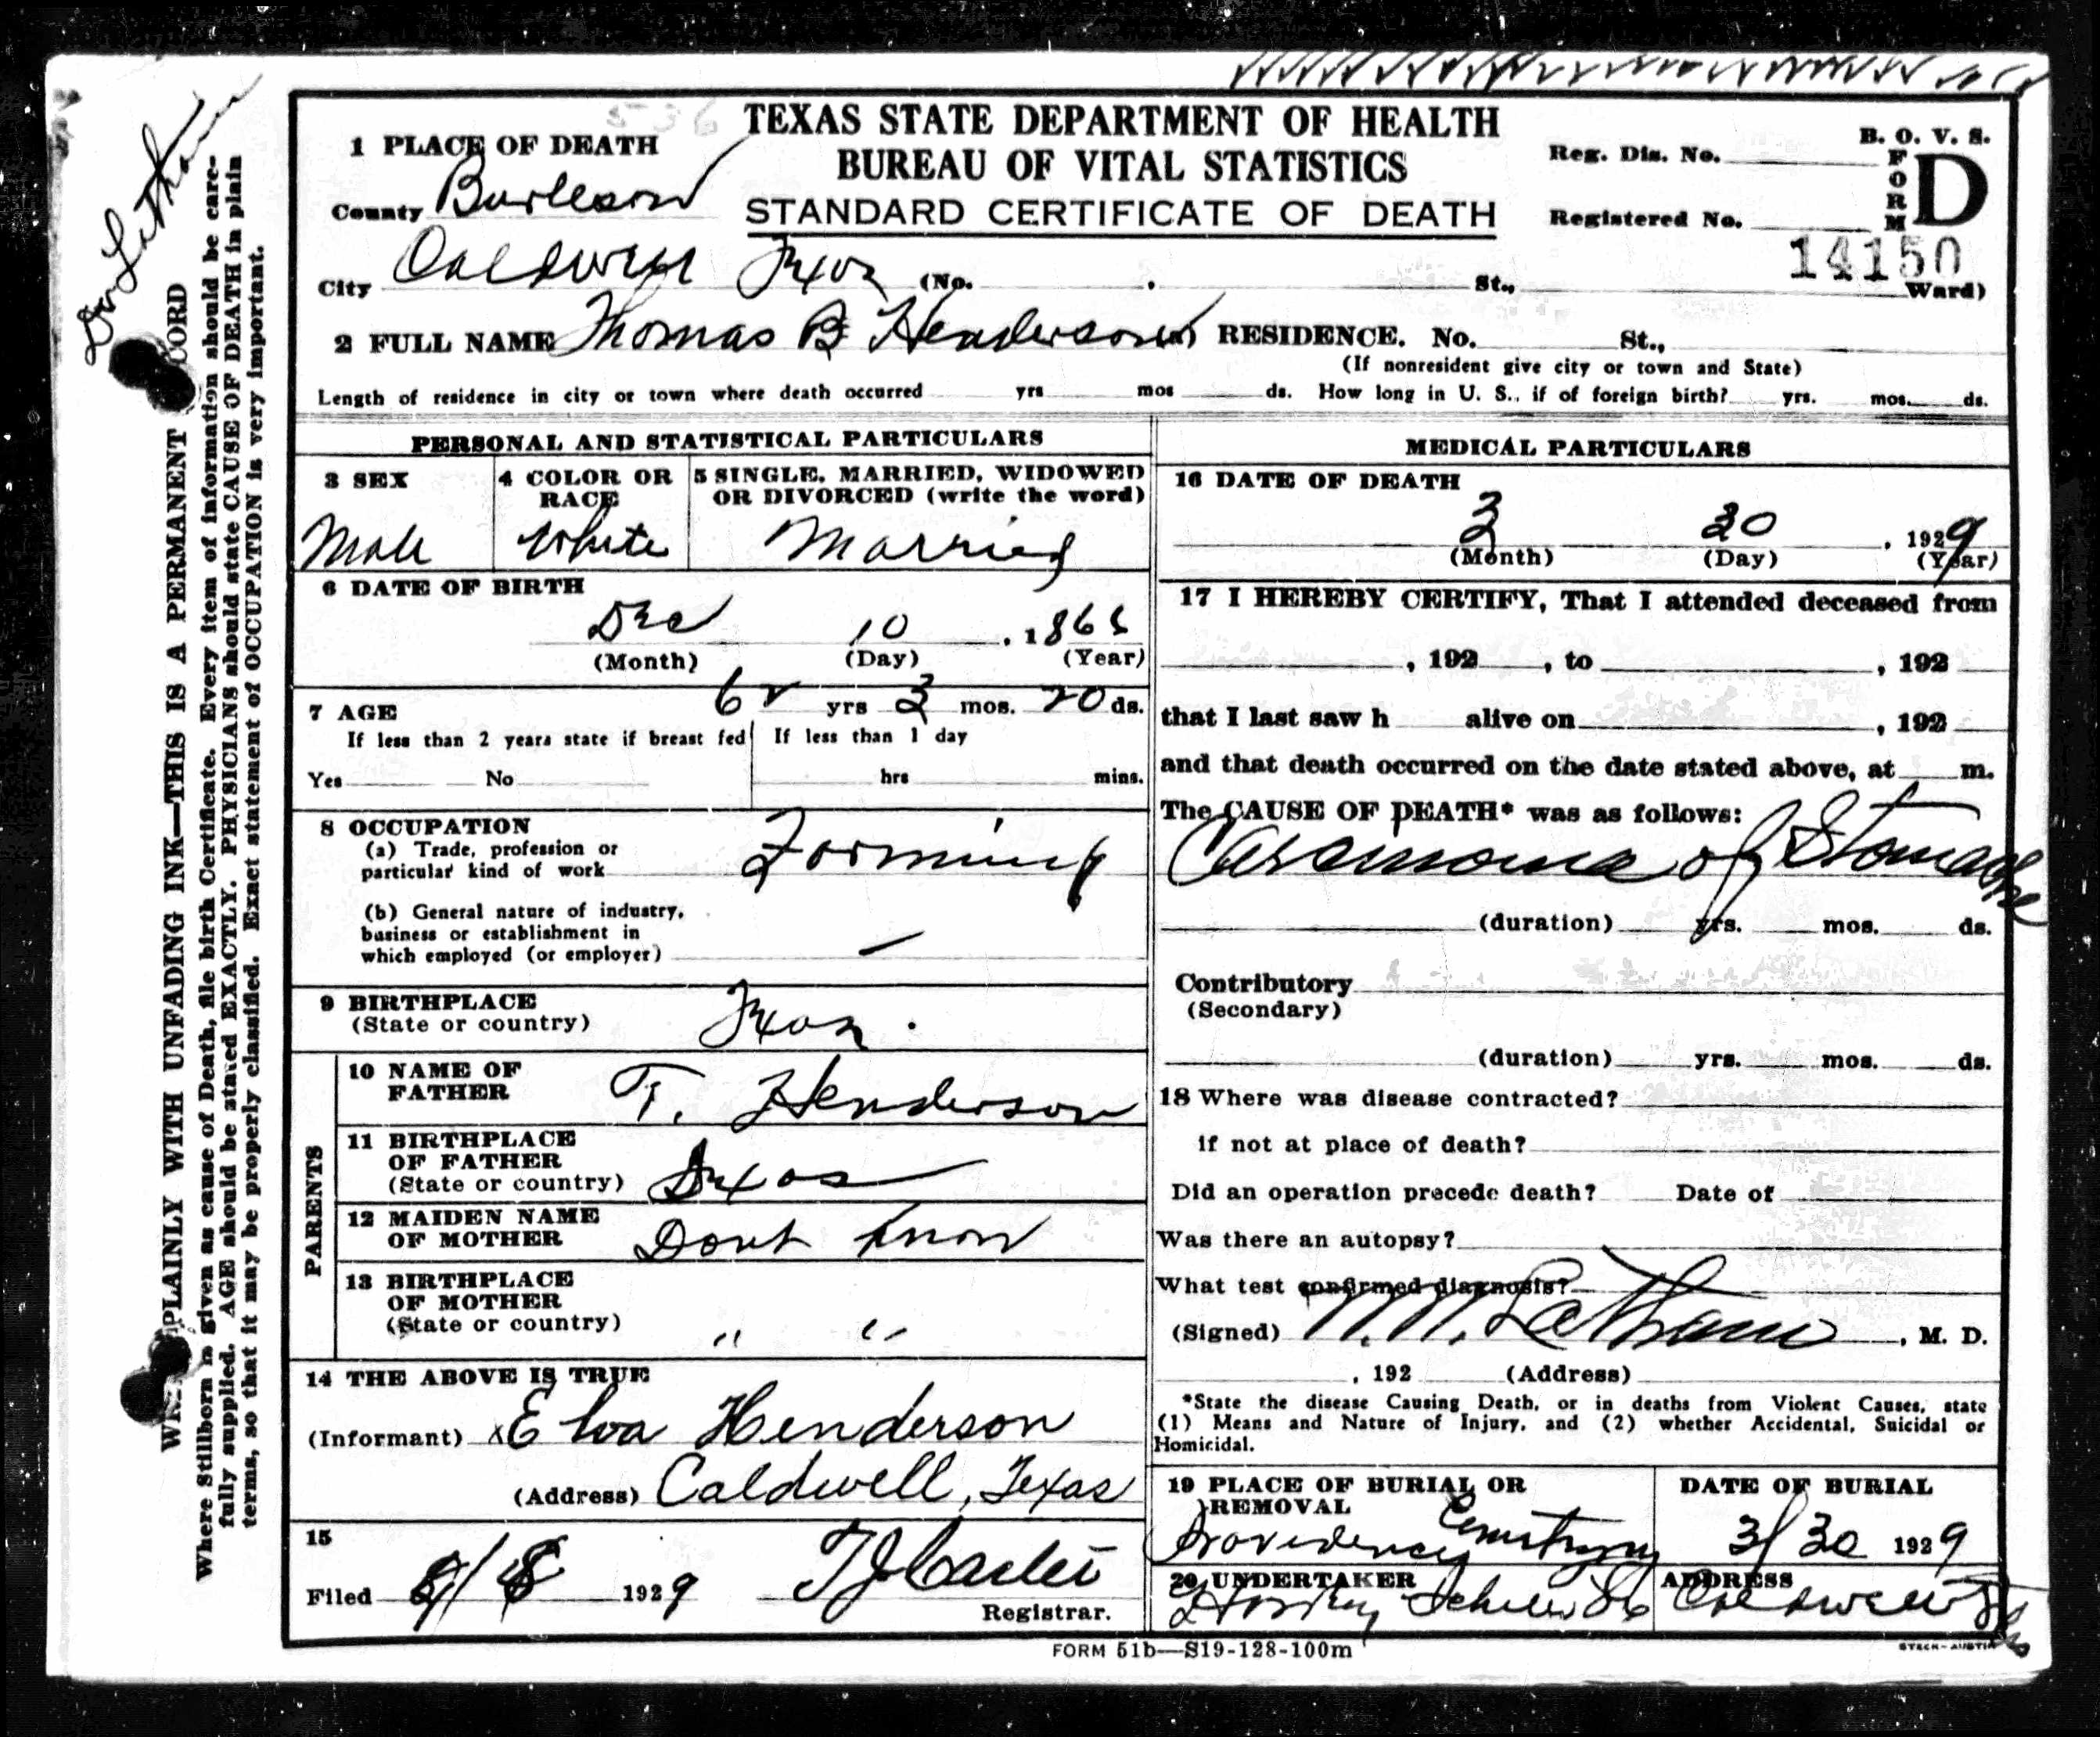 TEXAS STATE DEPARTMENT OF HEALTH
BUREAU OF VITAL STATISTICS
STANDARD CERTIFICATE OF DEATH
B. O. V. S.
FORM D
Reg. Dis. No.
Registered No.
14150
536
1 PLACE OF DEATH
County Burleson
City Caldwell Texas (No. St., Ward)
2 FULL NAME Thomas B Henderson RESIDENCE. No. St.,
(If nonresident give city or town and State)
Length of residence in city or town where death occurred yrs mos ds. How long in U. S., if of foreign birth? yrs. mos. ds.
PERSONAL AND STATISTICAL PARTICULARS
3 SEX
Male
4 COLOR OR RACE
White
5 SINGLE, MARRIED, WIDOWED
OR DIVORCED (write the word)
Married
6 DATE OF BIRTH
Dec 10, 1866
(Month) (Day) (Year)
7 AGE 62 yrs 3 mos. 20 ds.
If less than 2 years state if breast fed
Yes No
If less than 1 day
hrs mins.
8 OCCUPATION
(a) Trade, profession or
particular kind of work Farming
(b) General nature of industry,
business or establishment in
which employed (or employer) —
9 BIRTHPLACE
(State or country) Texas.
PARENTS
10 NAME OF
FATHER T. Henderson
11 BIRTHPLACE
OF FATHER
(State or country) Texas
12 MAIDEN NAME
OF MOTHER Dont know
13 BIRTHPLACE
OF MOTHER
(State or country) " "
14 THE ABOVE IS TRUE
(Informant) x Elva Henderson
(Address) Caldwell, Texas
15
Filed 1929
Registrar.
MEDICAL PARTICULARS
16 DATE OF DEATH
3 30, 1929
(Month) (Day) (Year)
17 I HEREBY CERTIFY, That I attended deceased from
, 192 , to , 192
that I last saw h alive on , 192
and that death occurred on the date stated above, at m.
The CAUSE OF DEATH* was as follows:
Carcinoma of Stomach
(duration) yrs. mos. ds.
Contributory
(Secondary)
(duration) yrs. mos. ds.
18 Where was disease contracted?
if not at place of death?
Did an operation precede death? Date of
Was there an autopsy?
What test confirmed diagnosis?
(Signed) Latham, M. D.
, 192 (Address)
*State the disease Causing Death, or in deaths from Violent Causes, state
(1) Means and Nature of Injury, and (2) whether Accidental, Suicidal or
Homicidal.
19 PLACE OF BURIAL OR
REMOVAL
Providence Cemetery
DATE OF BURIAL
3/30 1929
20 UNDERTAKER
ADDRESS
Caldwell
FORM 51b—S19-128-100m
STECK-AUSTIN
Dr Latham
PLAINLY WITH UNFADING INK—THIS IS A PERMANENT
Where Stillborn is given as cause of Death, file birth Certificate. Every item of information should be care-
fully supplied. AGE should be stated EXACTLY. PHYSICIANS should state CAUSE OF DEATH in plain
terms, so that it may be properly classified. Exact statement of OCCUPATION is very important.